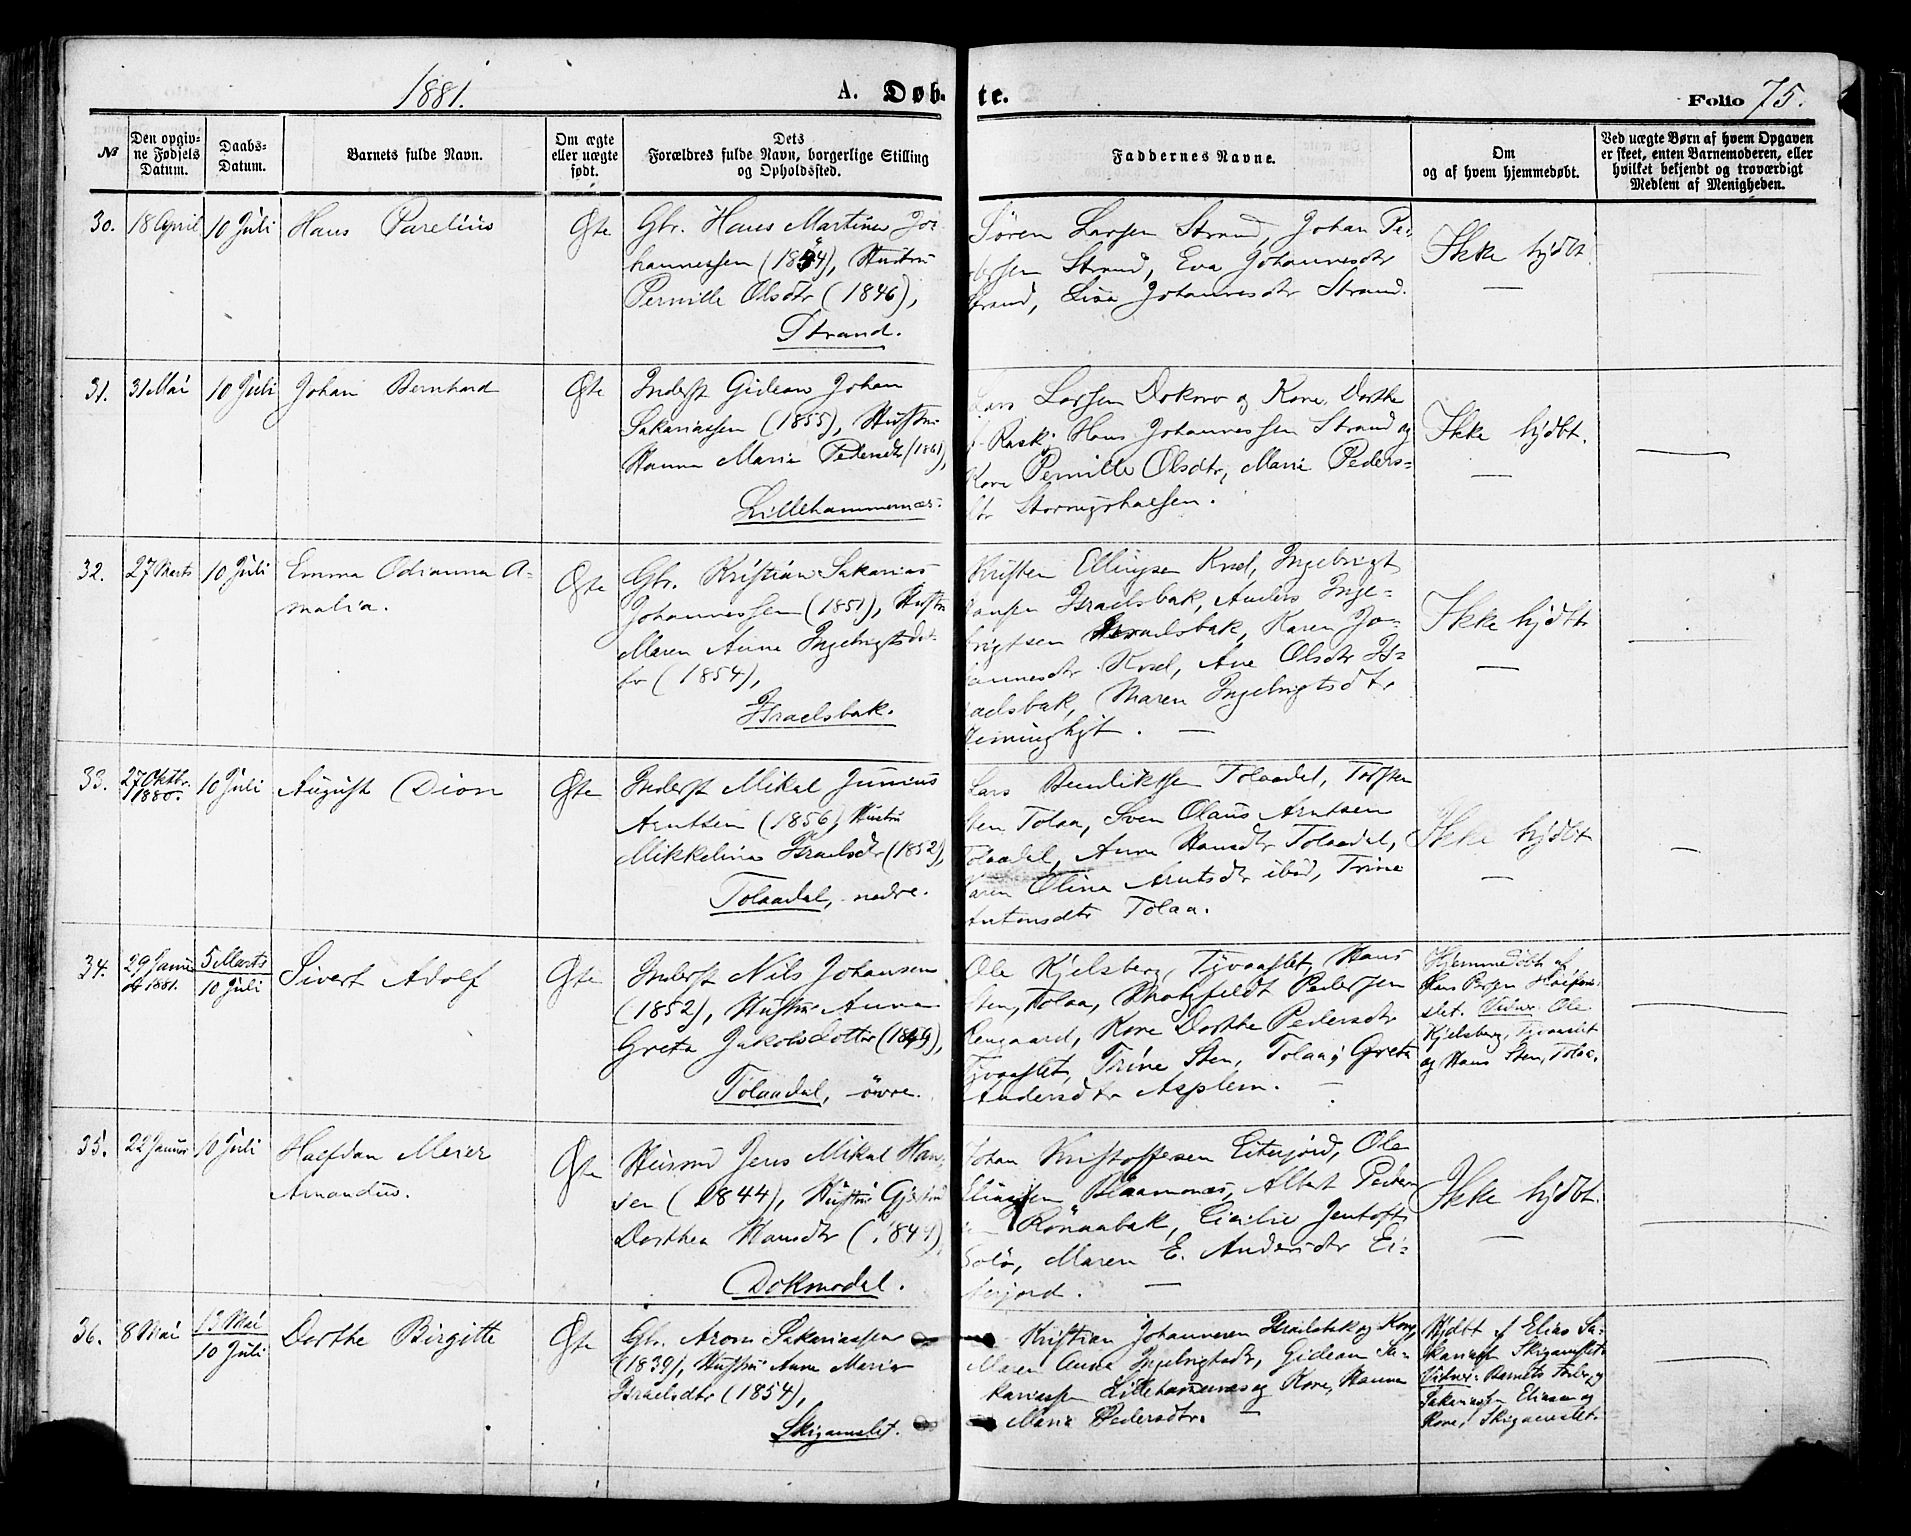 1881.
A. Døb-
te.
Folio 75.
№
Den opgiv-
ne Fødsels
Datum.
Daabs-
Datum.
Barnets fulde Navn.
Om ægte
eller uægte
født.
Dets
Forældres fulde Navn, borgerlige Stilling
og Opholdssted.
Faddernes Navne.
Om
og af hvem hjemmedøbt.
Ved uægte Børn af hvem Opgaven
er skeet, enten Barnemoderen, eller
hvilket bekjendt og troværdigt
Medlem af Menigheden.
30. 18 April 10 Juli Hans Parelius Ægte
Gbr. Hans Martinus Jo-
hannessen (1854), Hustru
Pernille Olsdtr (1846),
Strand.
Sören Larsen Strand, Johan Pe-
dersen Strand, Eva Johannesdtr
Strand, Lisa Johannesdtr Strand.
Ikke hjdbt.
31. 31 Mai 10 Juli Johan Bernhard Ægte
Inderst Gidean Johan
Sakariassen (1855), Hustru
Hanna Maria Pedersdtr (1861),
Lillehammernæs.
Lars Larsen Dokmo og Kone, Dorthe
Rask, Hans Johannessen Strand og
Kone Pernille Olsdtr, Marie Peders-
dtr
Ikke hjdbt.
32. 27 Marts 10 Juli Emma Odianna A-
malia.
Ægte
Gbr. Kristian Sakarias
Johannessen (1851), Hustru
Maren Anna Ingebrigtsdat-
ter (1854),
Israelsbak.
Kristen Ellingsen Ingebrigt
Hansen Israelsbak, Anders Inge-
brigtsen Israelsbak, Karen Jo-
hannesdtr Ane Olsdtr Is-
raelsbak, Maren Ingebrigtsdtr
Ikke hjdbt
33. 27 Oktbr.
1880.
10 Juli August Dion Ægte
Inderst Mikal Junius
Arntsen (1856), Hustru
Mikkelina Israelsdtr (1852),
Tolaadal, nedre.
Lars Benediktsen Tolaadal,
Sten Tolaa, Sven Olaus Arntsen
Tolaadal, Anna Hansdtr Tolaadal,
Karen Olina Arntsdtr ibid, Trine
Antonsdtr Tolaa.
Ikke hjdbt
34. 29 Janu-
ar 1881.
5 Marts
10 Juli
Sivert Adolf Ægte
Inderst Nils Johansen
(1852), Hustru Anna
Greta Jakobsdotter (1849),
Tolaadal, øvre.
Ole Kjelsberg, Tyvaaslet, Hans
Sten, Tolaa, Motzfeldt Pedersen
Kone Dorthe Pedersdtr
Tyvaaslet, Trine Sten, Tolaa, Greta
Andersdtr Asplem.
Hjemmedøbt af
Hans
slet. Vidner: Ole
Kjelsberg, Tyvaaslet
og Hans Sten, Tolaa.
35. 22 Januar 10 Juli Halfdan Meier
Amandus.
Ægte
Husmd Jens Mikal Han-
sen (1844), Hustru
Dorthea Hansdtr
Dokmodal.
Johan Kristoffersen Eiterjord, Ole
Albert Peder-
Rönaabak, Cicilie Jentoft
Solö, Maren E. Andersdtr Ei-
terjord.
Ikke hjdbt.
36. 8 Mai 12 Mai
10 Juli
Dorthe Birgitte Ægte
Gbr. Aron Sakariassen
(1839), Hustru Anne Maria
Israelsdtr (1854),
Skigamslet.
Kristian Johannesen Israelsbak og Kone
Maren Anna Ingebrigtsdtr, Gidean Sa-
kariassen Lillehammernæs og Kone, Hanna
Maria Pedersdtr.
Hjdbt af Elias Sa-
kariasn Skigamslet.
Vidner: Barnets Fader og
Sakarias Eliasen og
Kone, Skigamslet.